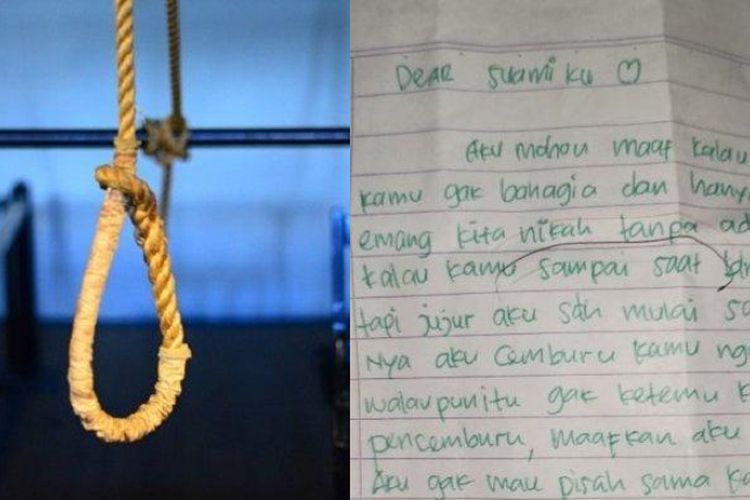 Dear suamiku ♡
Aku mohon maaf kalau
kamu gak bahagia dan hany
emang kita nikah tanpa ad
kalau kamu sampai saat
tapi jujur aku sih mulai sa
nya aku cemburu kamu ng
walaupun itu gak ketemu k
pencemburu, maafkan aku
Aku gak mau pisah sama ka